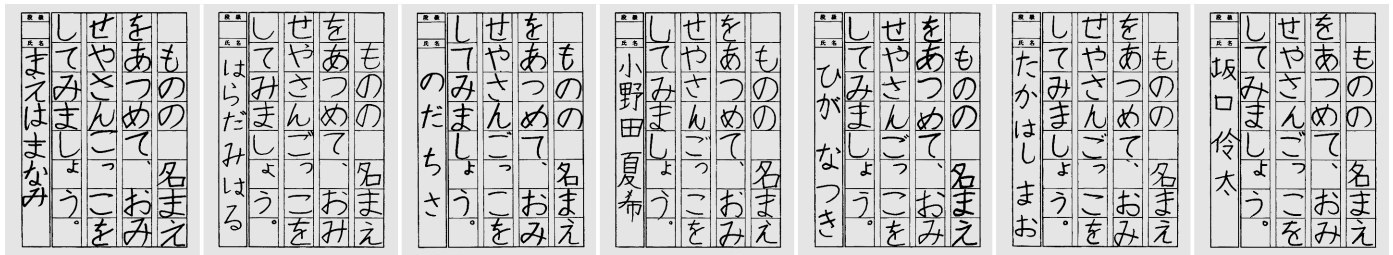 ものの 名まえ
をあつめて、おみ
せやさんごっこを
してみましょう。
段級
氏名 まえはまなみ
ものの 名まえ
をあつめて、おみ
せやさんごっこを
してみましょう。
段級
氏名 はらだみはる
ものの 名まえ
をあつめて、おみ
せやさんごっこを
してみましょう。
段級
氏名 のだちさ
ものの 名まえ
をあつめて、おみ
せやさんごっこを
してみましょう。
段級
氏名 小野田夏希
ものの 名まえ
をあつめて、おみ
せやさんごっこを
してみましょう。
段級
氏名 ひが なつき
ものの 名まえ
をあつめて、おみ
せやさんごっこを
してみましょう。
段級
氏名 たかはし まお
ものの 名まえ
をあつめて、おみ
せやさんごっこを
してみましょう。
段級
氏名 坂口 伶太